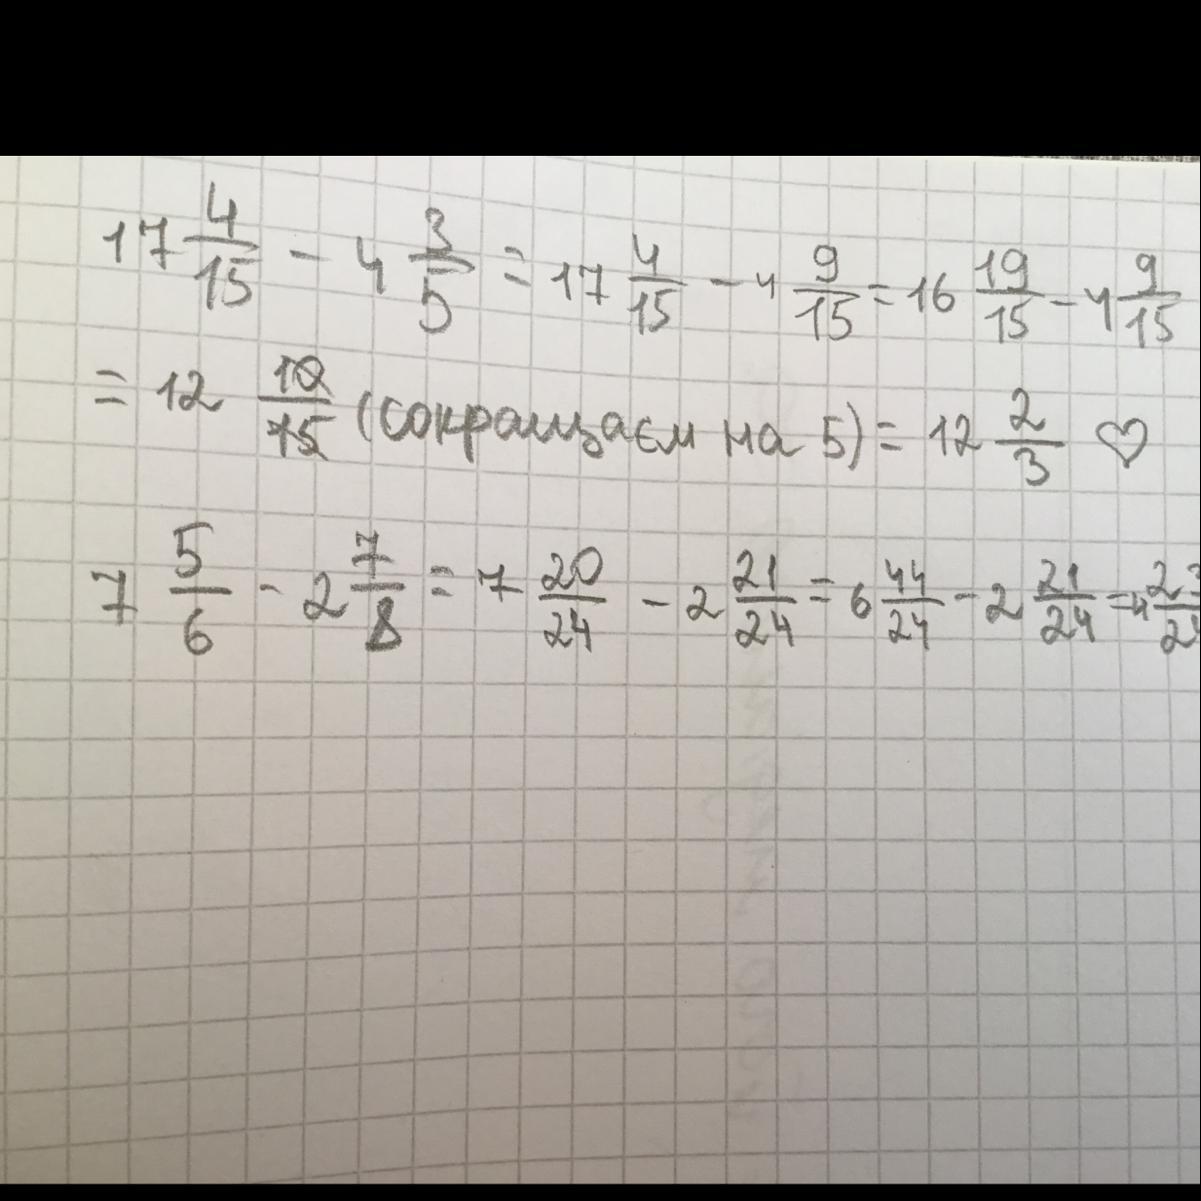 17 4/15 - 4 3/5 = 17 4/15 - 4 9/15 = 16 19/15 - 4 9/15
= 12 10/15 (сокращаем на 5) = 12 2/3 ♡
7 5/6 - 2 7/8 = 7 20/24 - 2 21/24 = 6 44/24 - 2 21/24 = 4